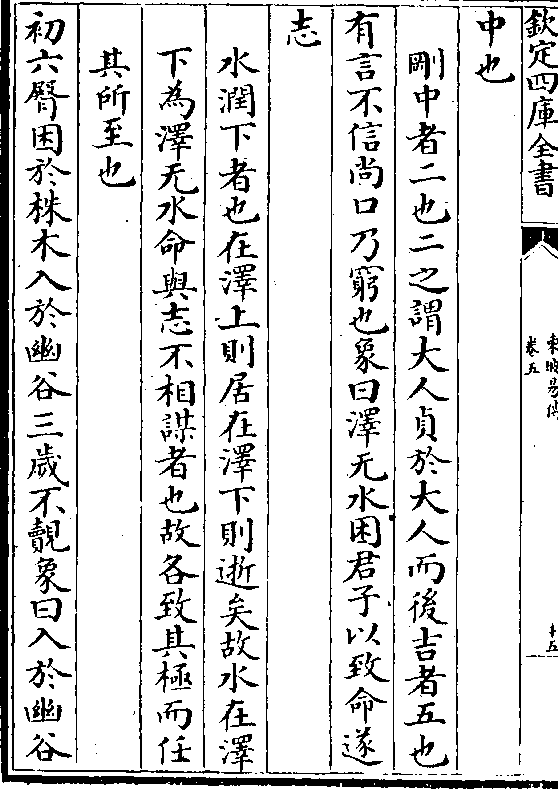 欽定四庫全書
東坡易傳
卷五
十五
中也
剛中者二也二之謂大人貞於大人而後吉者五也
有言不信尚口乃窮也象曰澤无水困君子以致命遂
志
水潤下者也在澤上則居在澤下則逝矣故水在澤
下為澤无水命與志不相謀者也故各致其極而任
其所至也
初六臀困於株木入於幽谷三歲不覿象曰入於幽谷